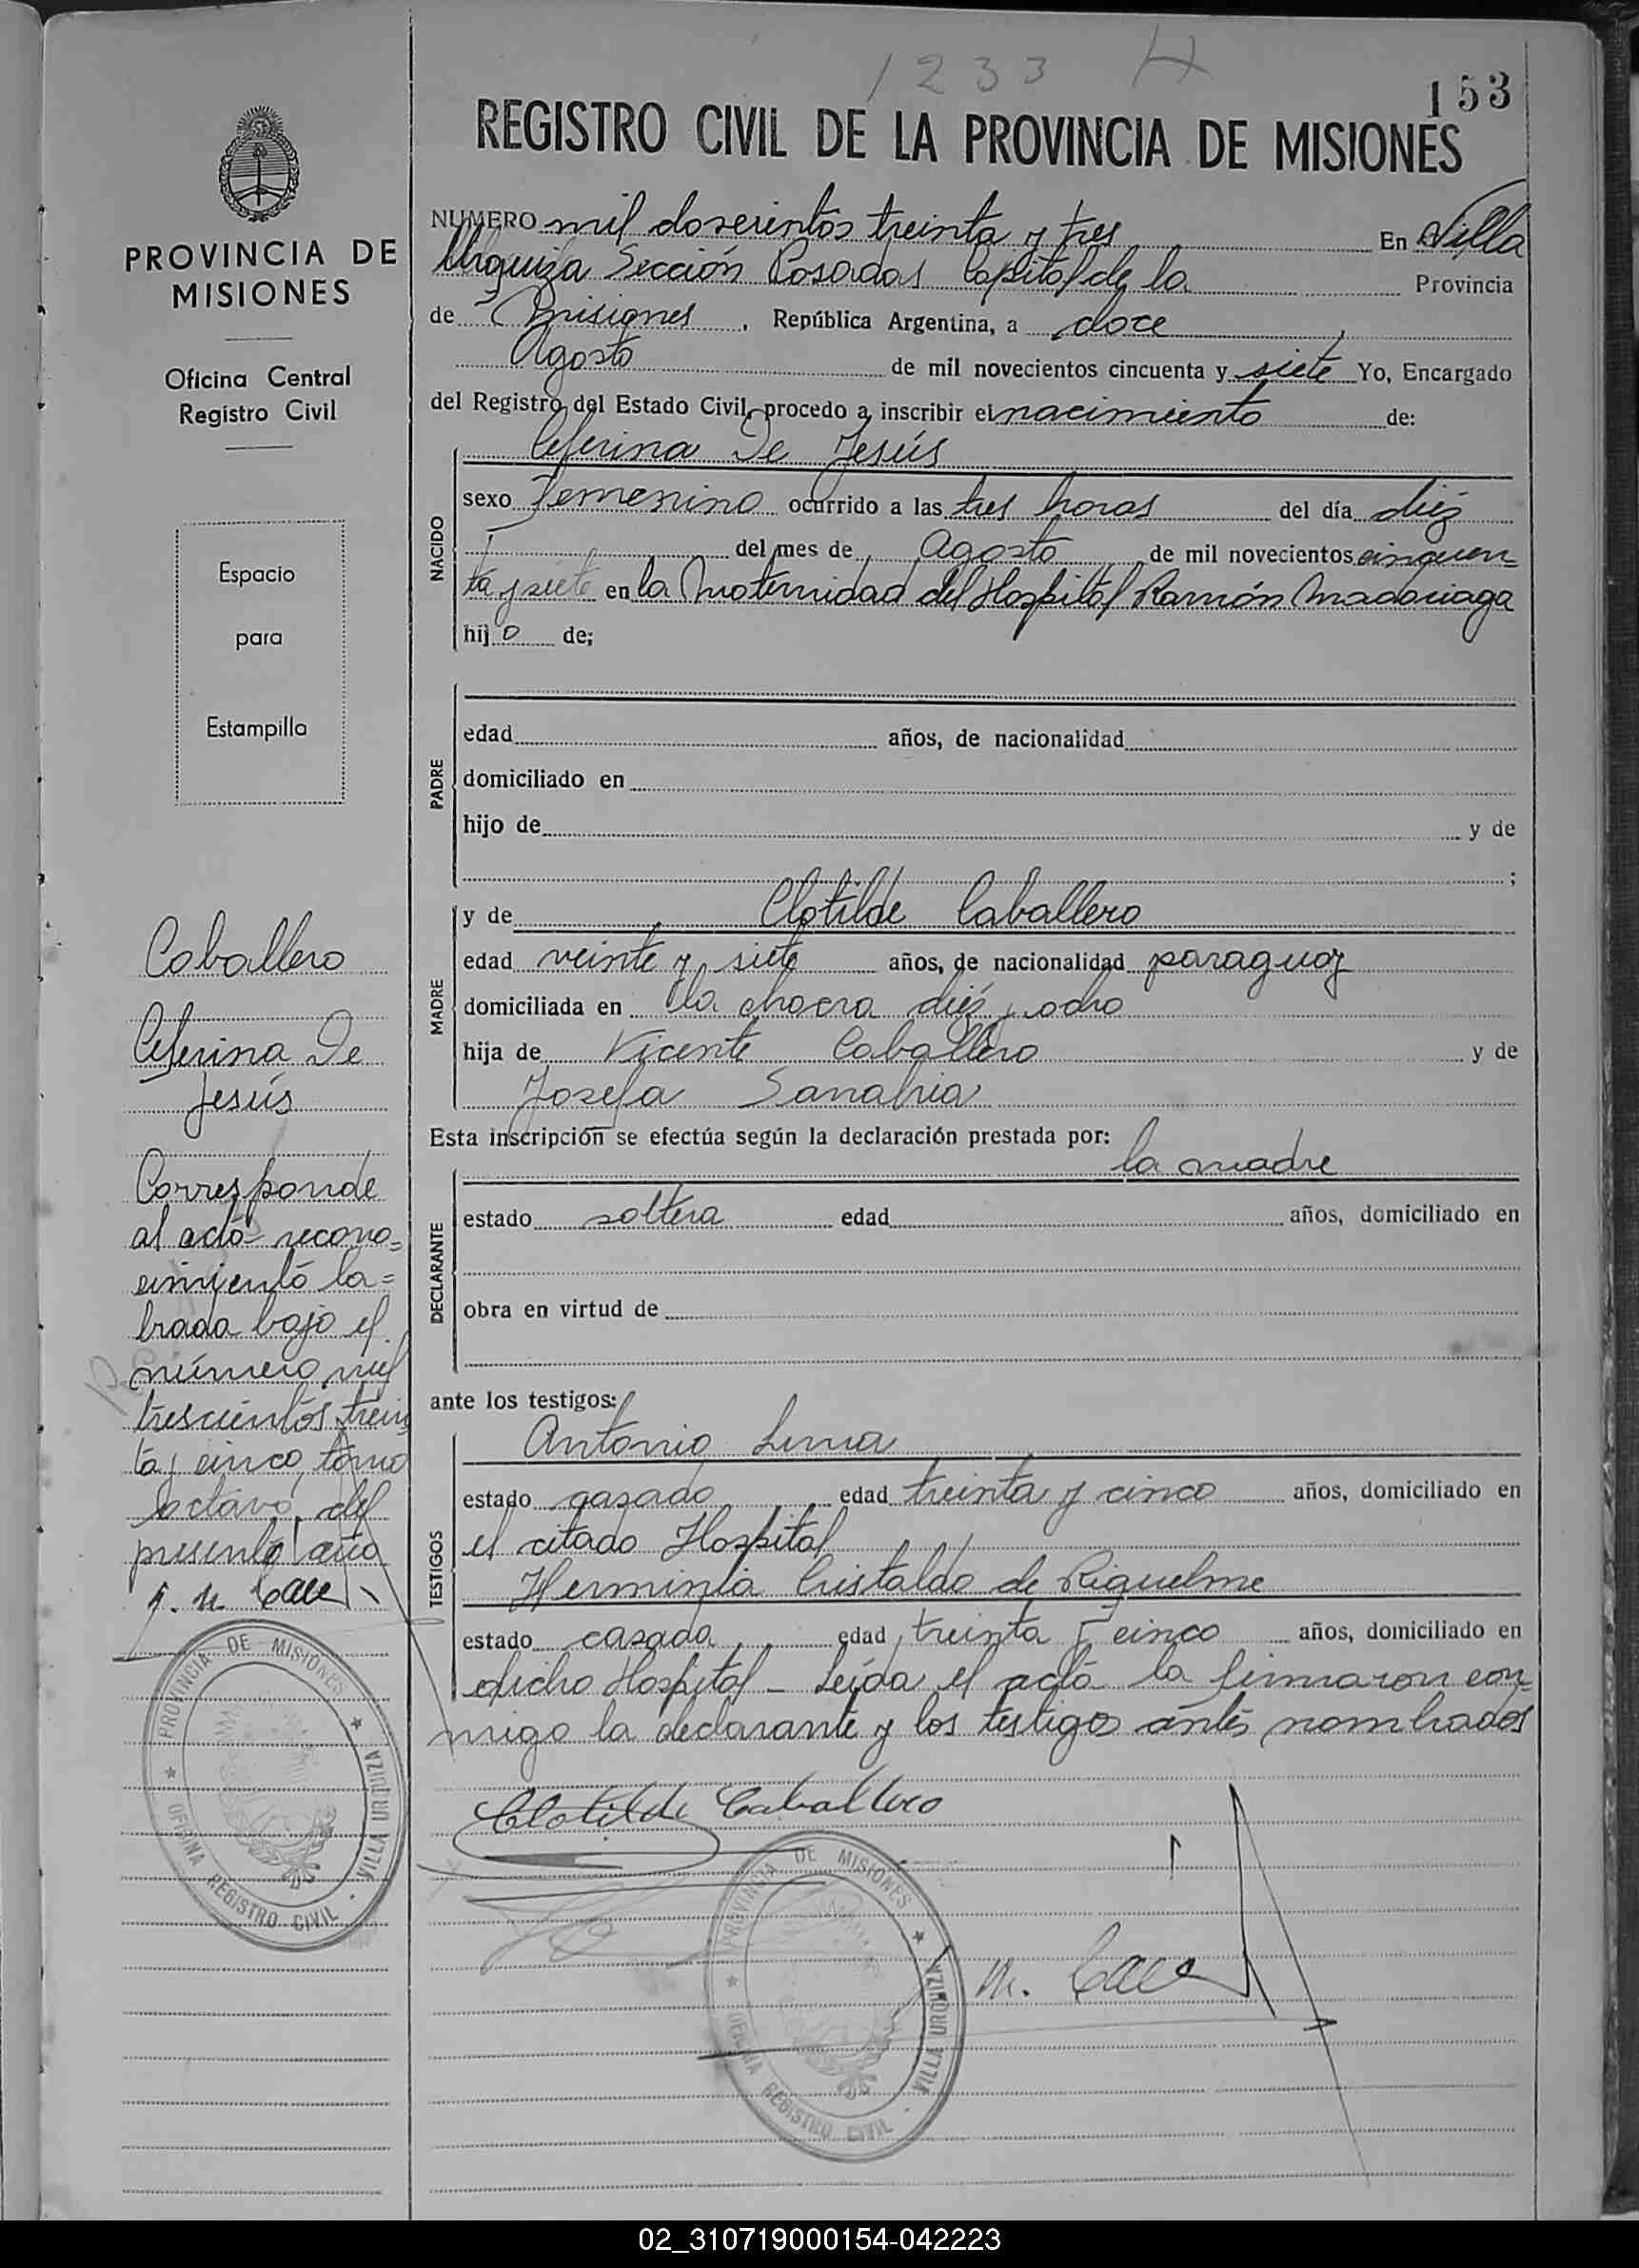 1233 H
153
REGISTRO CIVIL DE LA PROVINCIA DE MISIONES
NUMERO mil doscientos treinta y tres En Villa
Urquiza Sección Posadas Capital de la Provincia
de Misiones, República Argentina, a doce
Agosto de mil novecientos cincuenta y siete Yo, Encargado
del Registro del Estado Civil, procedo a inscribir el nacimiento de:
Ceferina De Jesús
NACIDO
sexo Femenino ocurrido a las tres horas del día diéz
del mes de Agosto de mil novecientos cinquen=
ta y siete en la Maternidad del Hospital Ramón Madariaga
hijo de;
PADRE
edad años, de nacionalidad
domiciliado en
hijo de y de
;
MADRE
y de Clotilde Caballero
edad veinte y siete años, de nacionalidad paraguay
domiciliada en la chacra diéz y ocho
hija de Vicente Caballero y de
Josefa Sanabria
Esta inscripción se efectúa según la declaración prestada por:
la madre
DECLARANTE
estado soltera edad años, domiciliado en
obra en virtud de
ante los testigos:
Antonio Luna
TESTIGOS
estado casado edad treinta y cinco años, domiciliado en
el citado Hospital
Herminia Cristaldo de Riquelme
estado casada edad treinta y cinco años, domiciliado en
dicho Hospital - Leída el acta la firmaron con=
migo la declarante y los testigo antes nombrados
Clotilde Caballero
PROVINCIA DE MISIONES
OFICINA REGISTRO CIVIL · VILLA URQUIZA
PROVINCIA DE
MISIONES
Oficina Central
Registro Civil
Espacio
para
Estampilla
Caballero
Ceferina De
Jesús
Corresponde
al acta recono=
cimiento la=
brada bajo el
número mil
trescientos trein
ta y cinco, tomo
octavo, del
presente año
PROVINCIA DE MISIONES
OFICINA REGISTRO CIVIL · VILLA URQUIZA
02_310719000154-042223